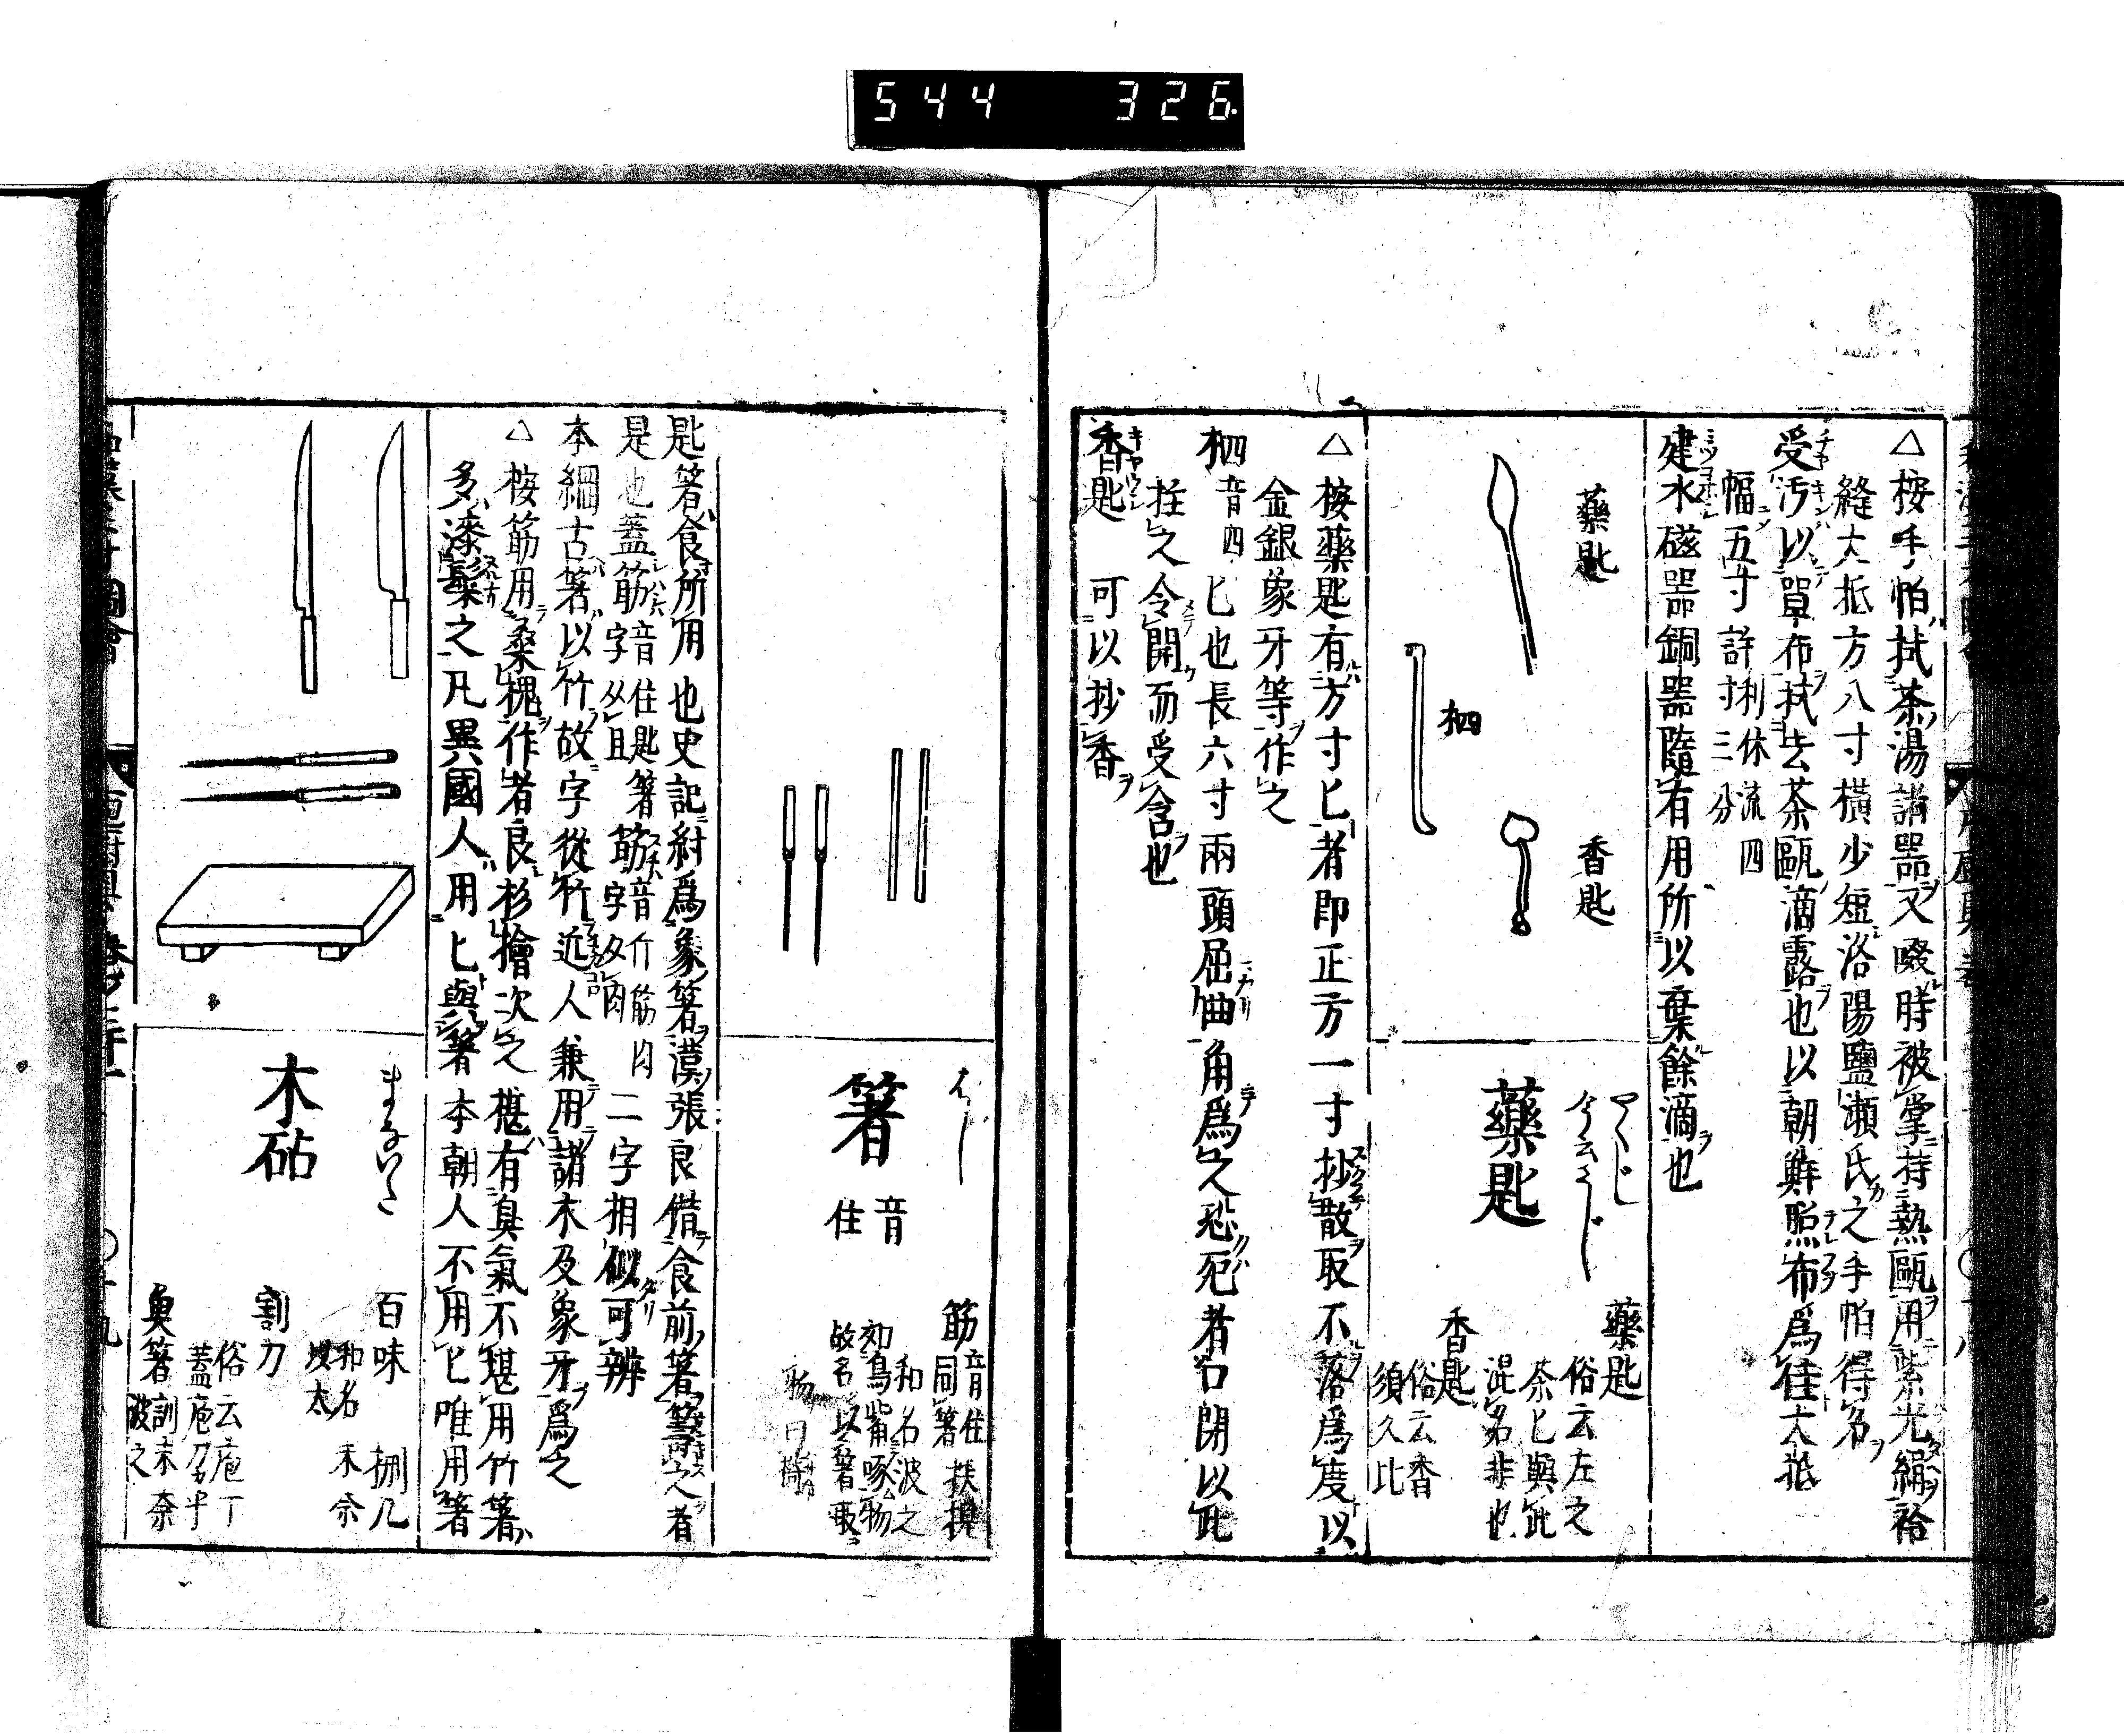 544 326
△按手帕拭茶湯諸器又啜時被掌持熱甌用紫光絹袷
縫大抵方八寸橫少短洛陽鹽瀬氏之手帕得名
受汚以單布拭去茶甌滴露也以朝鮮照布爲佳大抵
幅五寸許利休流四寸三分
建水磁器銅器隨有用所以棄餘滴也
藥匙
香匙
栖
やくじ
今云さじ
藥匙
藥匙
俗云左之
茶匕與此
混名非也
香匙
俗云香
須久比
△按藥匙有方寸匕者即正方一寸抄散取不落爲度以
金銀象牙等作之
栖音四匕也長六寸兩頭屈曲角爲之恐死者口閉以此
拄之令開而受含也
香匙 可以抄香
はし
箸
音住
筯
音住
同箸
梜提
和名波之
如鳥觜啄物
故名以箸取
物曰
匙箸食所用也史記紂爲象箸漢張良借食前箸籌之者
是也蓋筯字音住匙箸从且筋字音斤筋肉从肉二字相似可辨
本綱古箸以竹故字從竹近人兼用諸木及象牙爲之
△按筯用桑槐作者良杉檜次之椹有臭氣不堪用竹箸
多漆髹之凡異國人用匕與箸本朝人不用匕唯用箸
まないた
木砧
百味
棚几
和名末奈
以太
割刀
俗云庖丁
蓋庖刀乎
魚箸
訓末奈
波之